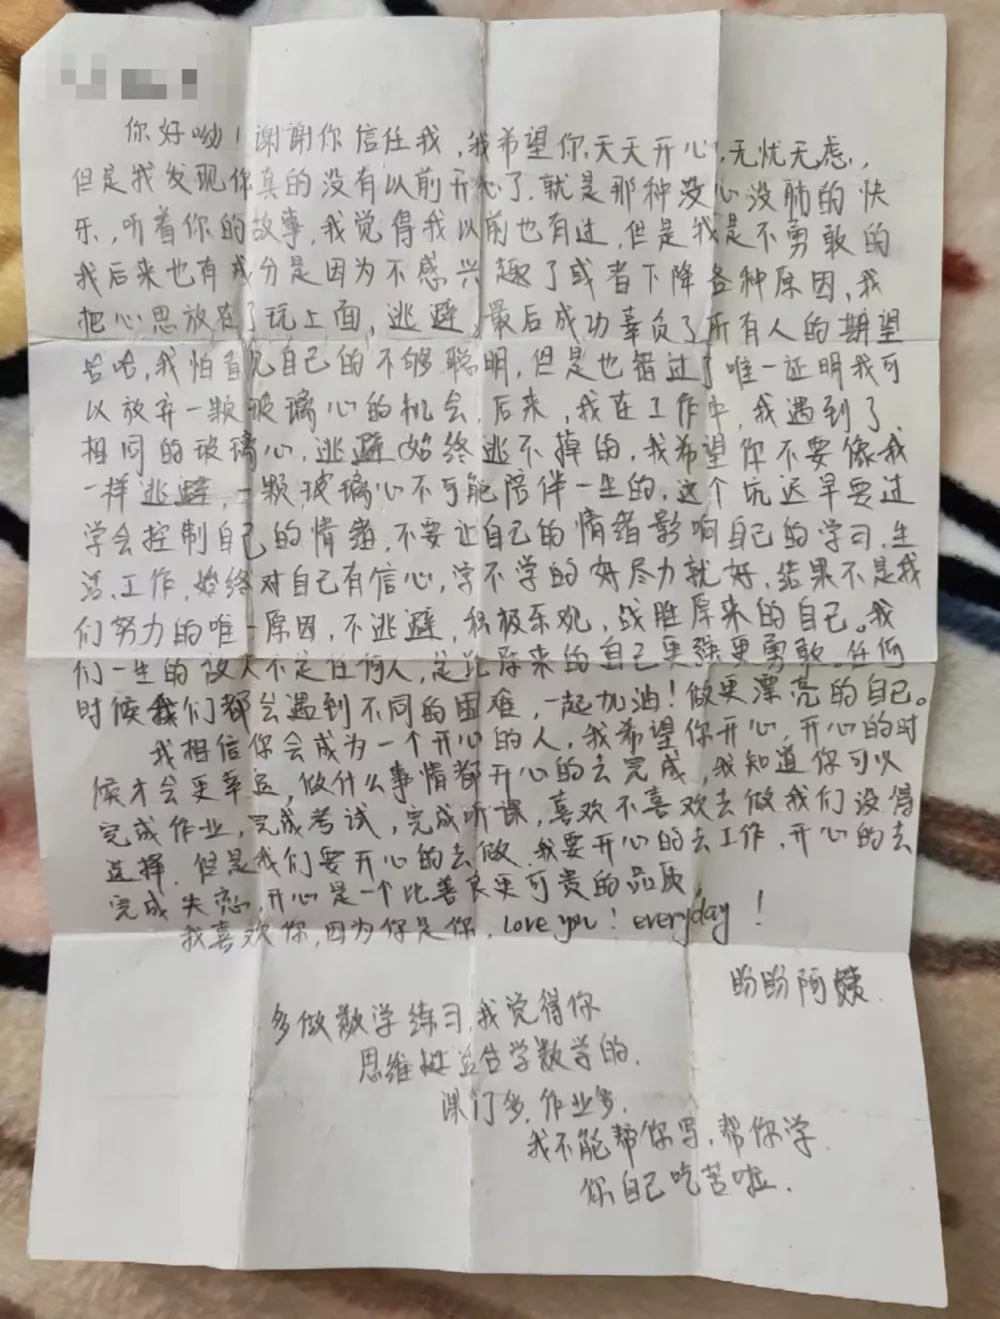 你好呦！谢谢你信任我，我希望你天天开心，无忧无虑，
但是我发现你真的没有以前开心了，就是那种没心没肺的快
乐，听着你的故事，我觉得我以前也有过，但是我是不勇敢的
我后来也有成分是因为不感兴趣了或者下降各种原因，我
把心思放在了玩上面，逃避，最后成功辜负了所有人的期望
哈哈，我怕看见自己的不够聪明，但是也错过了唯一证明我可
以放弃一颗玻璃心的机会，后来，我在工作中，我遇到了
相同的玻璃心，逃避始终逃不掉的，我希望你不要像我
一样逃避，一颗玻璃心不可能陪伴一生的，这个坑迟早要过
学会控制自己的情绪，不要让自己的情绪影响自己的学习，生
活、工作，始终对自己有信心，学不学的好尽力就好，结果不是我
们努力的唯一原因，不逃避，积极乐观，战胜原来的自己。我
们一生的敌人不是任何人，是比原来的自己更强更勇敢。任何
时候我们都会遇到不同的困难，一起加油！做更漂亮的自己。
我相信你会成为一个开心的人，我希望你开心，开心的时
候才会更幸运，做什么事情都开心的去完成，我知道你可以
完成作业，完成考试，完成听课，喜欢不喜欢去做我们没得
选择，但是我们要开心的去做，我要开心的去工作，开心的去
完成失恋，开心是一个比善良更可贵的品质，
我喜欢你，因为你是你，love you！everyday！
盼盼阿姨．
多做数学练习，我觉得你
思维挺适合学数学的．
课门多，作业多，
我不能帮你写，帮你学．
你自己吃苦啦．